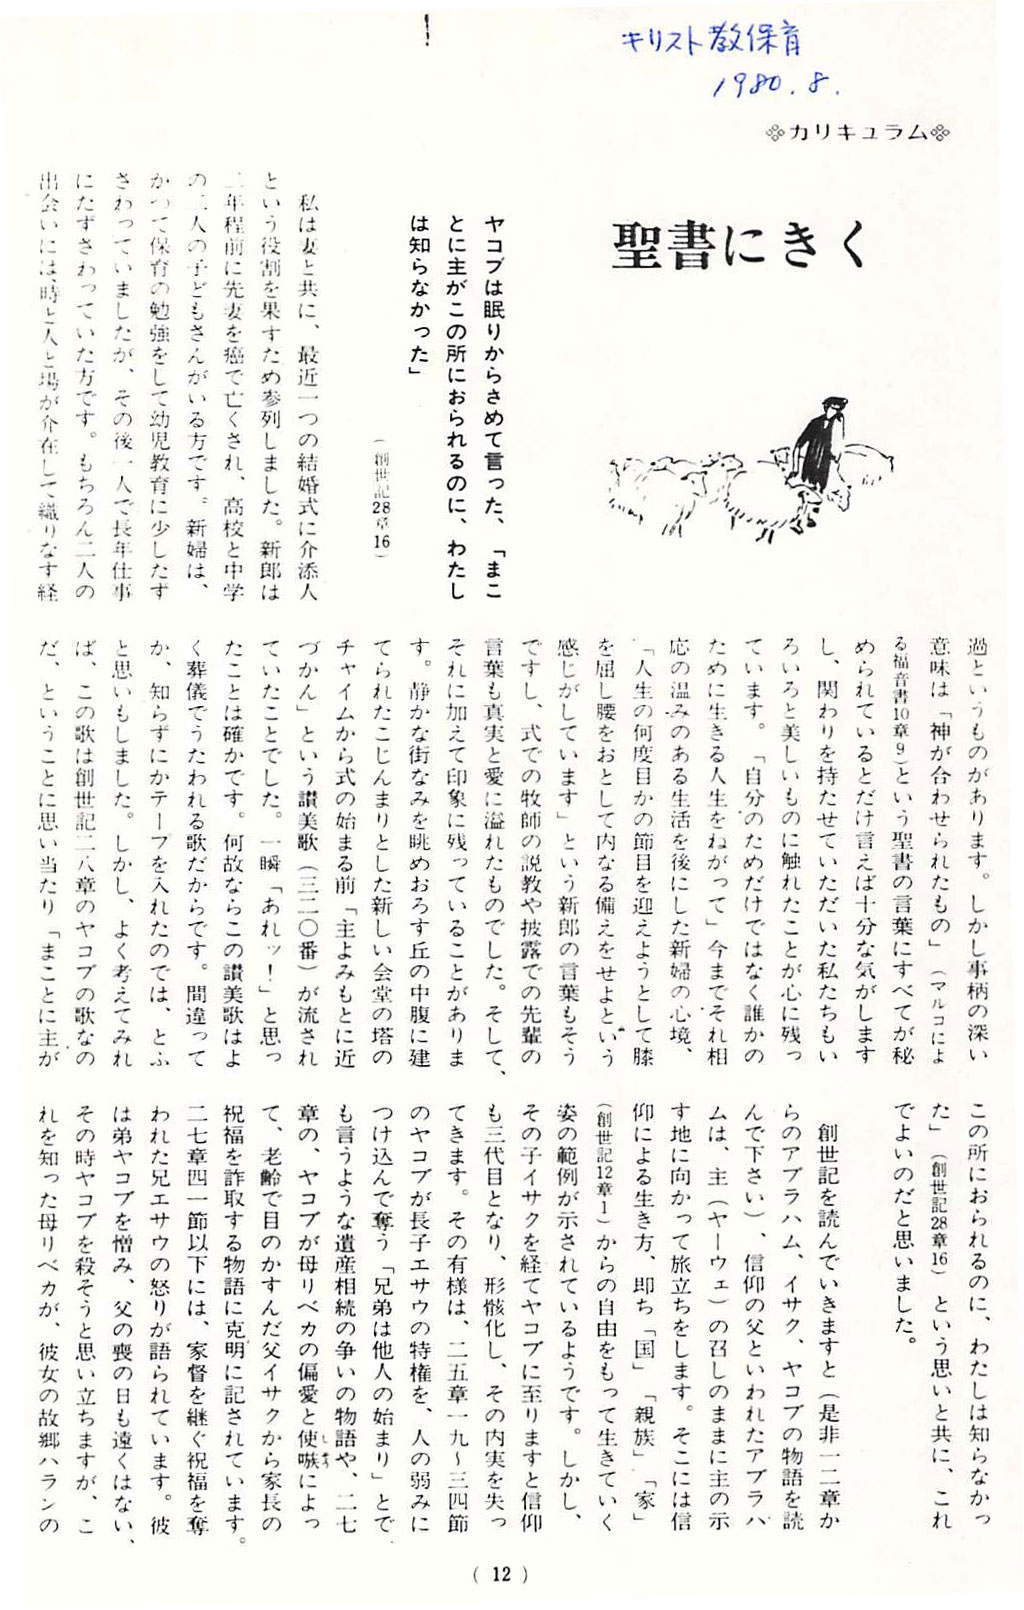 キリスト教保育
1980.8.
カリキュラム
聖書にきく
ヤコブは眠りからさめて言った、「まこ
とに主がこの所におられるのに、わたし
は知らなかった」
（創世記28章16）
私は妻と共に、最近一つの結婚式に介添人
という役割を果すため参列しました。新郎は
二年程前に先妻を癌で亡くされ、高校と中学
の二人の子どもさんがいる方です。新婦は、
かつて保育の勉強をして幼児教育に少したず
さわっていましたが、その後一人で長年仕事
にたずさわっていた方です。もちろん二人の
出会いには、時と人と場が介在して織りなす経
過というものがあります。しかし事柄の深い
意味は「神が合わせられたもの」（マルコによ
る福音書10章9）という聖書の言葉にすべてが秘
められているとだけ言えば十分な気がします
し、関わりを持たせていただいた私たちもい
ろいろと美しいものに触れたことが心に残っ
ています。「自分のためだけではなく誰かの
ために生きる人生をねがって」今までそれ相
応の温みのある生活を後にした新婦の心境、
「人生の何度目かの節目を迎えようとして膝
を屈し腰をおとして内なる備えをせよという
感じがしています」という新郎の言葉もそう
ですし、式での牧師の説教や披露での先輩の
言葉も真実と愛に溢れたものでした。そして、
それに加えて印象に残っていることがありま
す。静かな街なみを眺めおろす丘の中腹に建
てられたこじんまりとした新しい会堂の塔の
チャイムから式の始まる前「主よみもとに近
づかん」という讃美歌（三二〇番）が流され
ていたことでした。一瞬「あれッ！」と思っ
たことは確かです。何故ならこの讃美歌はよ
く葬儀でうたわれる歌だからです。間違って
か、知らずにかテープを入れたのでは、とふ
と思いもしました。しかし、よく考えてみれ
ば、この歌は創世記二八章のヤコブの歌なの
だ、ということに思い当たり「まことに主が
この所におられるのに、わたしは知らなかっ
た」（創世記28章16）という思いと共に、これ
でよいのだと思いました。
創世記を読んでいきますと（是非一二章か
らのアブラハム、イサク、ヤコブの物語を読
んで下さい）、信仰の父といわれたアブラハ
ムは、主（ヤーウェ）の召しのままに主の示
す地に向かって旅立ちをします。そこには信
仰による生き方、即ち「国」「親族」「家」
（創世記12章1）からの自由をもって生きていく
姿の範例が示されているようです。しかし、
その子イサクを経てヤコブに至りますと信仰
も三代目となり、形骸化し、その内実を失っ
てきます。その有様は、二五章一九～三四節
のヤコブが長子エサウの特権を、人の弱みに
つけ込んで奪う「兄弟は他人の始まり」とで
も言うような遺産相続の争いの物語や、二七
章の、ヤコブが母リベカの偏愛と使嗾によっ
て、老齢で目のかすんだ父イサクから家長の
祝福を詐取する物語に克明に記されています。
二七章四一節以下には、家督を継ぐ祝福を奪
われた兄エサウの怒りが語られています。彼
は弟ヤコブを憎み、父の喪の日も遠くはない、
その時ヤコブを殺そうと思い立ちますが、こ
れを知った母リベカが、彼女の故郷ハランの
（12）